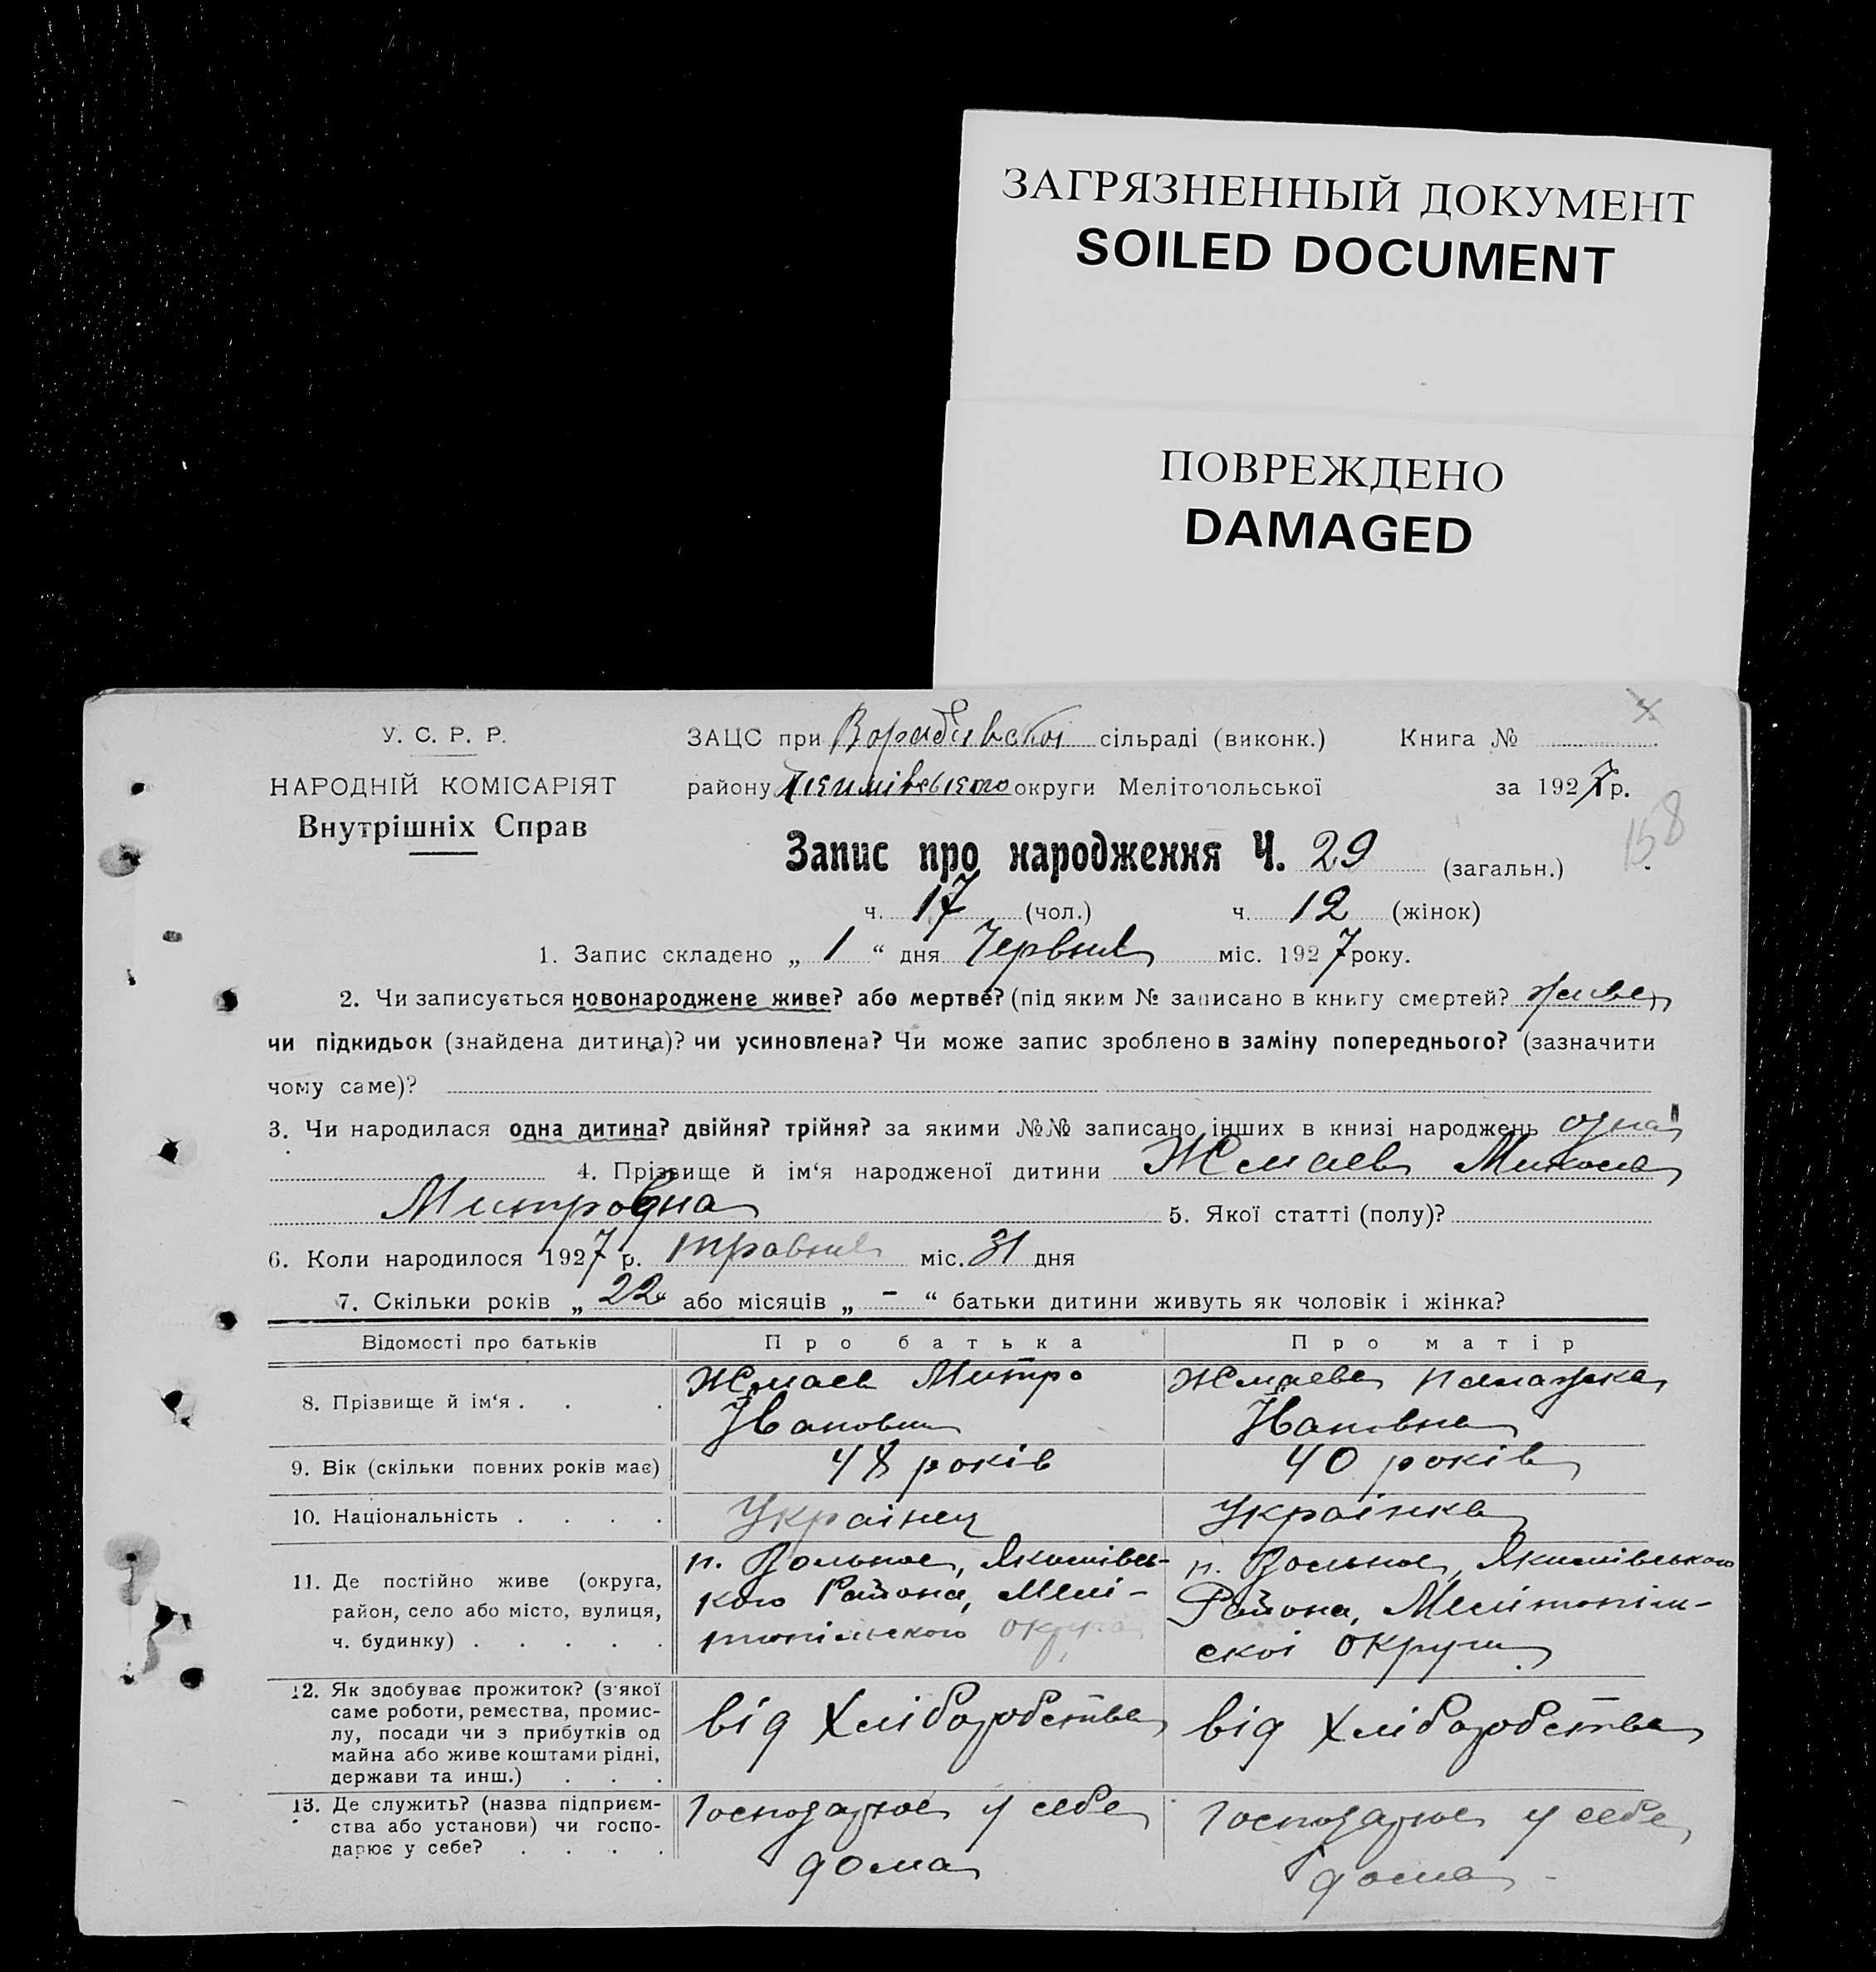 ЗАГРЯЗНЕННЫЙ ДОКУМЕНТ
SOILED DOCUMENT
ПОВРЕЖДЕНО
DAMAGED
У. С. Р. Р.
НАРОДНІЙ КОМІСАРІЯТ
Внутрішніх Справ
ЗАЦС при сільраді (виконк.) Книга №
району округи Мелітопольської за 1927 р.
158
Запис про народження Ч. 29 (загальн.)
ч. 17 (чол.) ч. 12 (жінок)
1. Запис складено „ 1 “ дня Червня міс. 1927 року.
2. Чи записується новонароджене живе? або мертве? (під яким № записано в книгу смертей? живе
чи підкидьок (знайдена дитина)? чи усиновлена? Чи може запис зроблено в заміну попереднього? (зазначити
чому саме)?
3. Чи народилася одна дитина? двійня? трійня? за якими №№ записано інших в книзі народжень одна
4. Прізвище й ім‘я народженої дитини Жмаев
5. Якої статті (полу)?
6. Коли народилося 1927 р. травня міс. 31 дня
7. Скільки років „ 22 або місяців „ - “ батьки дитини живуть як чоловік і жінка?
Відомості про батьків Про батька Про матір
8. Прізвище й ім‘я . . . Жмаев Митро Жмаева
Івановна
9. Вік (скільки повних років має) 48 років 40 років
10. Національність . . . . Украінец Украінка
11. Де постійно живе (округа, п. Вольное, Якимівсь- п. Вольное, Якимівського
район, село або місто, вулиця, кого Района, Мелі- Района, Мелітопіль-
ч. будинку) . . . . . топільского округа скоі округи
12. Як здобуває прожиток? (з якої
саме роботи, ремества, промис-
лу, посади чи з прибутків од від Хліборобства від Хліборобства
майна або живе коштами рідні,
держави та инш.) . . .
13. Де служить? (назва підприєм- Господарює у себе Господарює у себе
ства або установи) чи госпо-
дарює у себе? . . . . дома дома